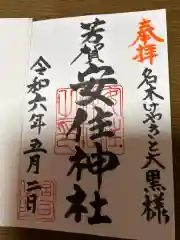 奉拝
名木けやきと大黒様
芳賀
安住神社
令和六年五月二日